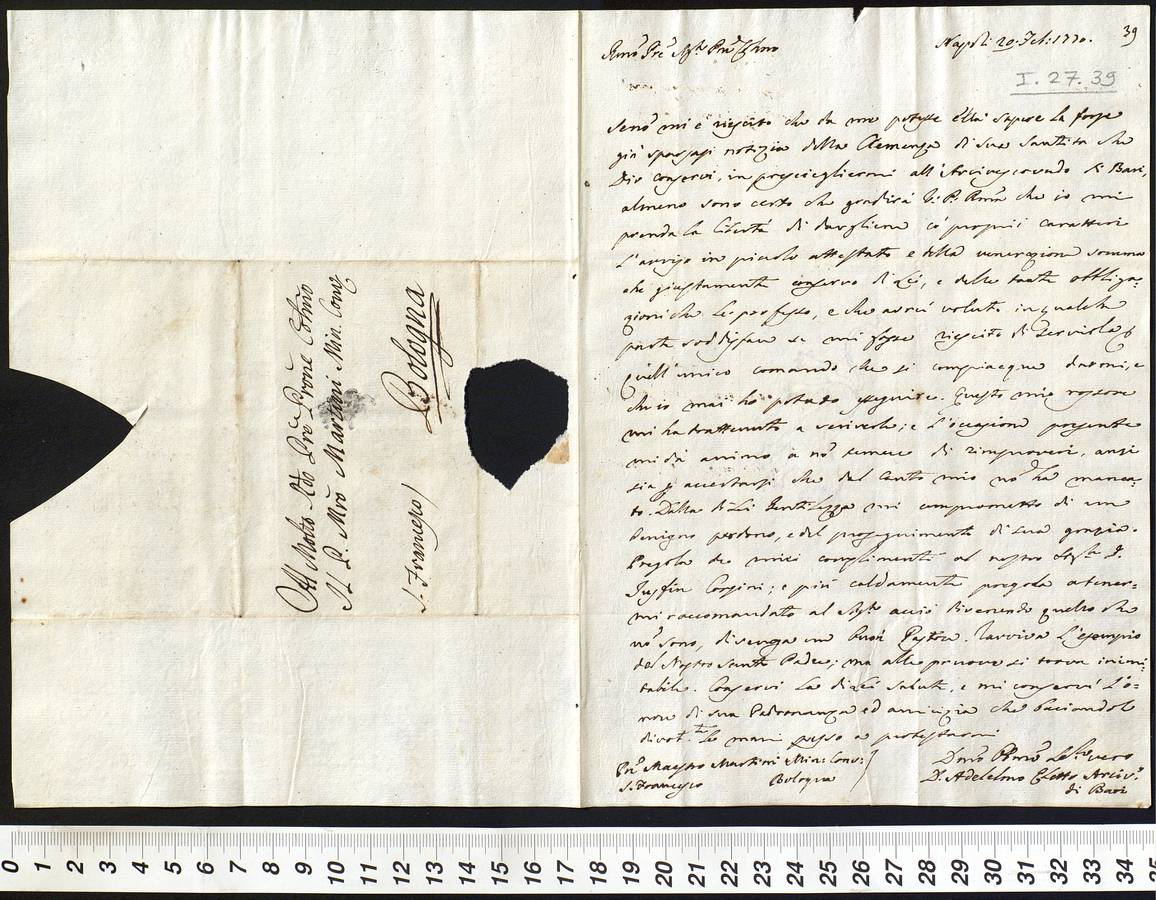 Al Molto Rdo Pre Prone Colmo
Il P. Mro Martini Min. Conv.
Bologna
S. Francesco
39
Napoli 20. Feb. 1770.
I. 27. 39
Se no mi è riescito che da me potesse Ella sapere la forse
già sparsasi notizia della Clemenza di Sua Santità che
Dio conservi, in presceglierni all'Arcivescovado di Bari,
almeno sono certo che gradirà V. P. Rma che io mi
prenda la libertà di dargliene co' proprii caratteri
l'avviso in piccolo attestato e della venerazione somma
che giustamente conservo di Lei, e delle tante obbliga-
zioni che Le professo, e che avrei voluto in qualche
parte soddisfare se mi fosse riescito di servirla
quell'unico comando che si compiacque darmi, e
che io mai ho potuto eseguire. Questo mio rossore
mi ha trattenuto a scriverle; e l'occasione presente
mi dà animo a no temere di rimproveri, anzi
sia accertarsi che dal canto mio no ha manca-
to. Dalla di Lei Gentilezza mi comprometto di un
benigno perdono, e del proseguimento di sua grazia.
Pregola de miei complimenti al nostro P.
Corsini; e più caldamente pregola a tener-
mi raccomandato al acciò divenendo quello che
no sono, divenga un buon Pastore. l'esempio
del Nostro Santo Padre; ma alle pruove si trova inimi-
tabile. Conservi La di Lei salute, e mi conservi l'o-
nore di sua Padronanza ed amicizia che baciandole
divot.te le mani passo a protestarmi
Maestro Martini Min: Conv:
S. Francesco Bologna
vero
D. Adelelmo Arciv.o
di Bari
0 1 2 3 4 5 6 7 8 9 10 11 12 13 14 15 16 17 18 19 20 21 22 23 24 25 26 27 28 29 30 31 32 33 34 35